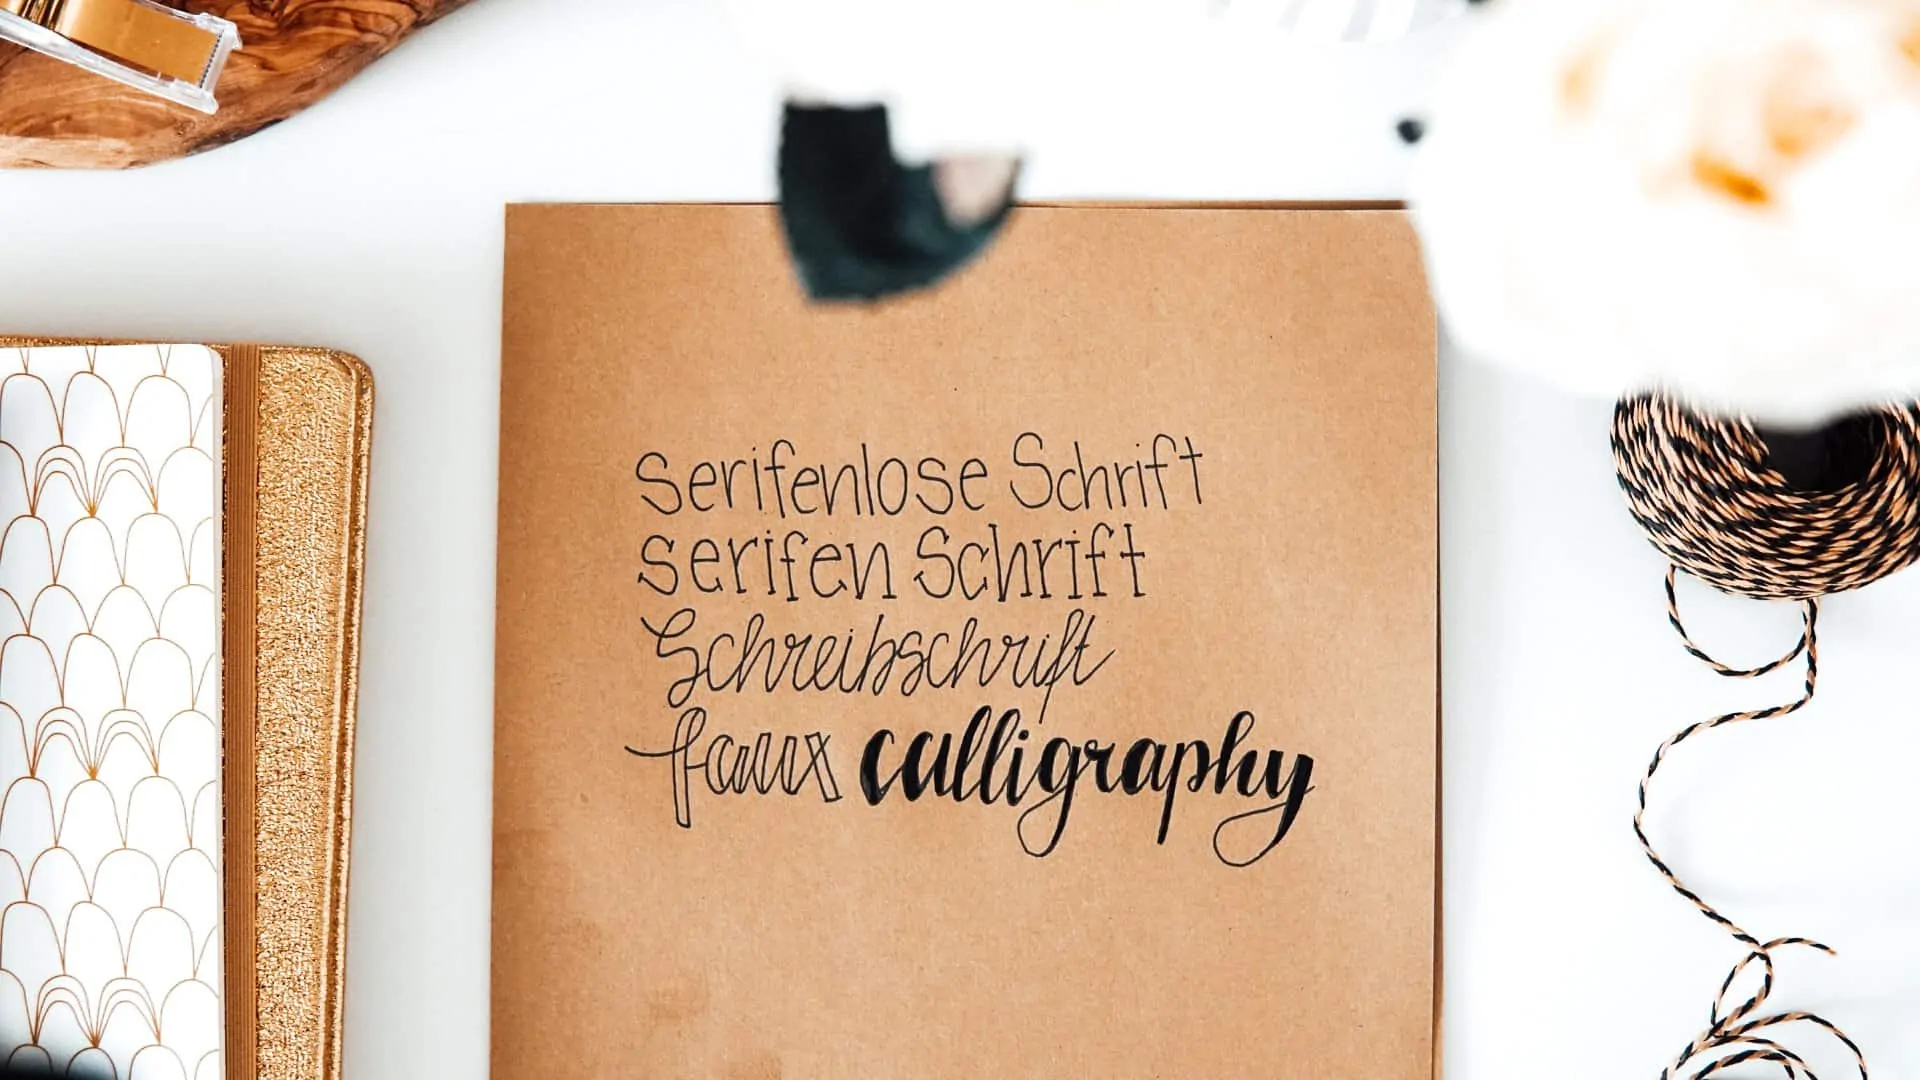 serifenlose Schrift
serifen Schrift
Schreibschrift
faux calligraphy